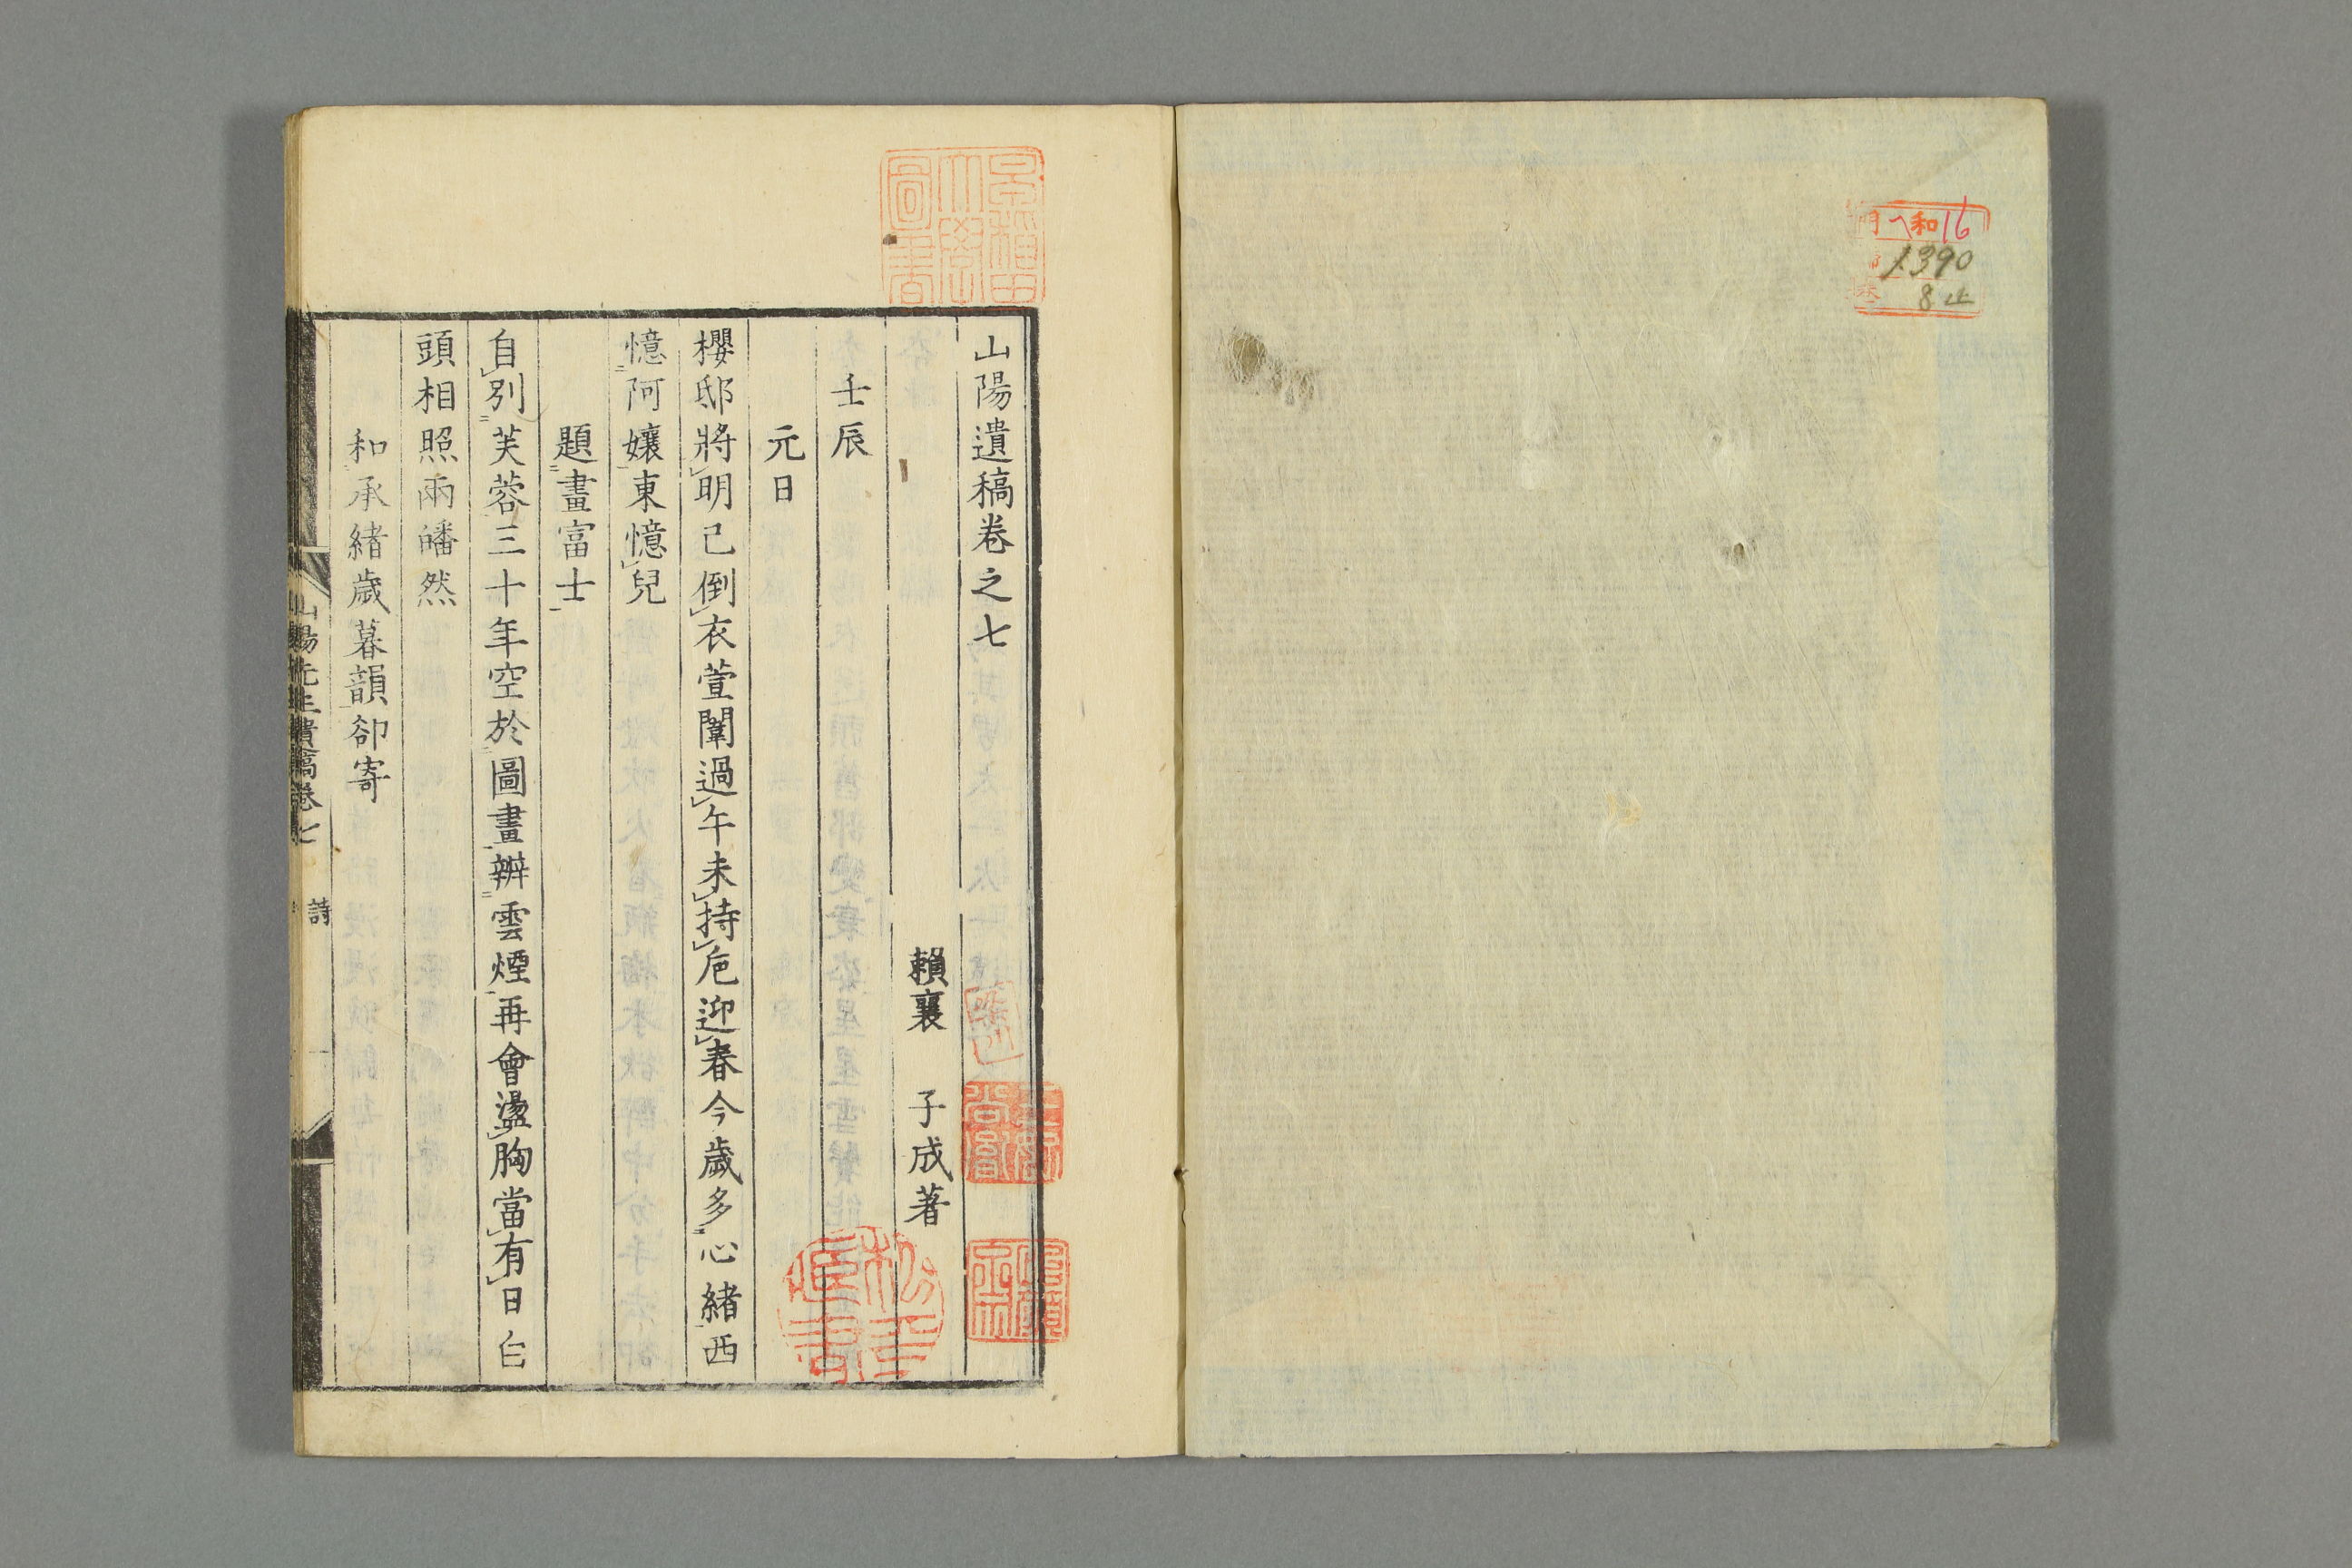 和16
1390
8止
早稲田大學圖書
山陽遺稿卷之七
賴襄 子成著
壬辰
元日
櫻邸將明已倒衣萱闈過午未持卮迎春今歲多心緒西
憶阿孃東憶兒
題畫富士
自別芙蓉三十年空於圖畫辨雲煙再會盪胸當有日白
頭相照兩皤然
和承緒歲暮韻卻寄
山陽先生遺稿卷七
詩